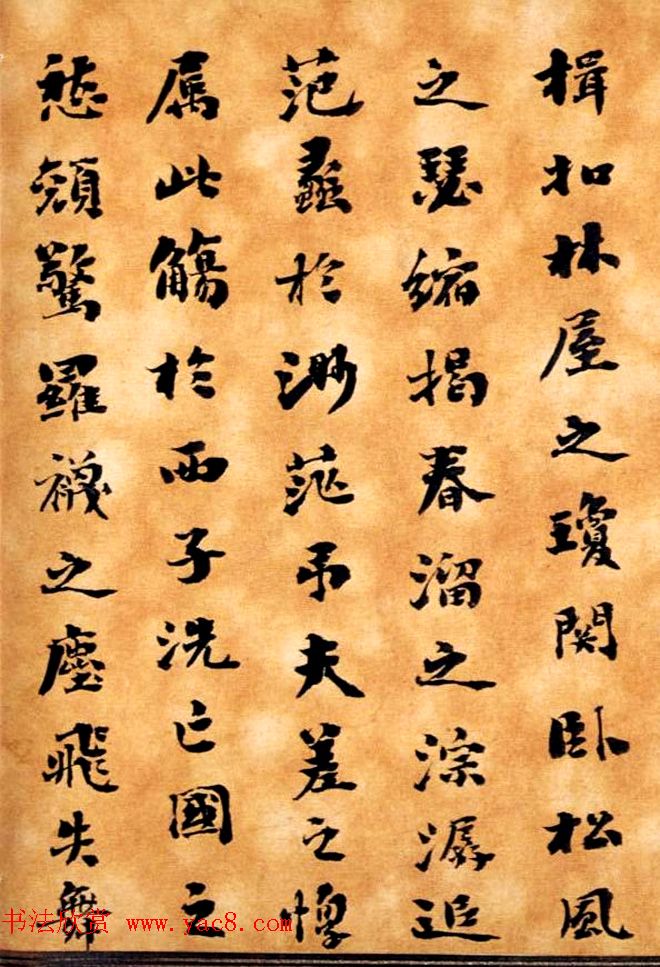 楫扣林屋之瓊関卧松風
之瑟縮揭春溜之淙潺追
范蠡於渺茫吊夫差之惸
属此觴於西子洗亡國之
愁顔驚羅襪之塵飛失舞
书法欣赏 www.yac8.com